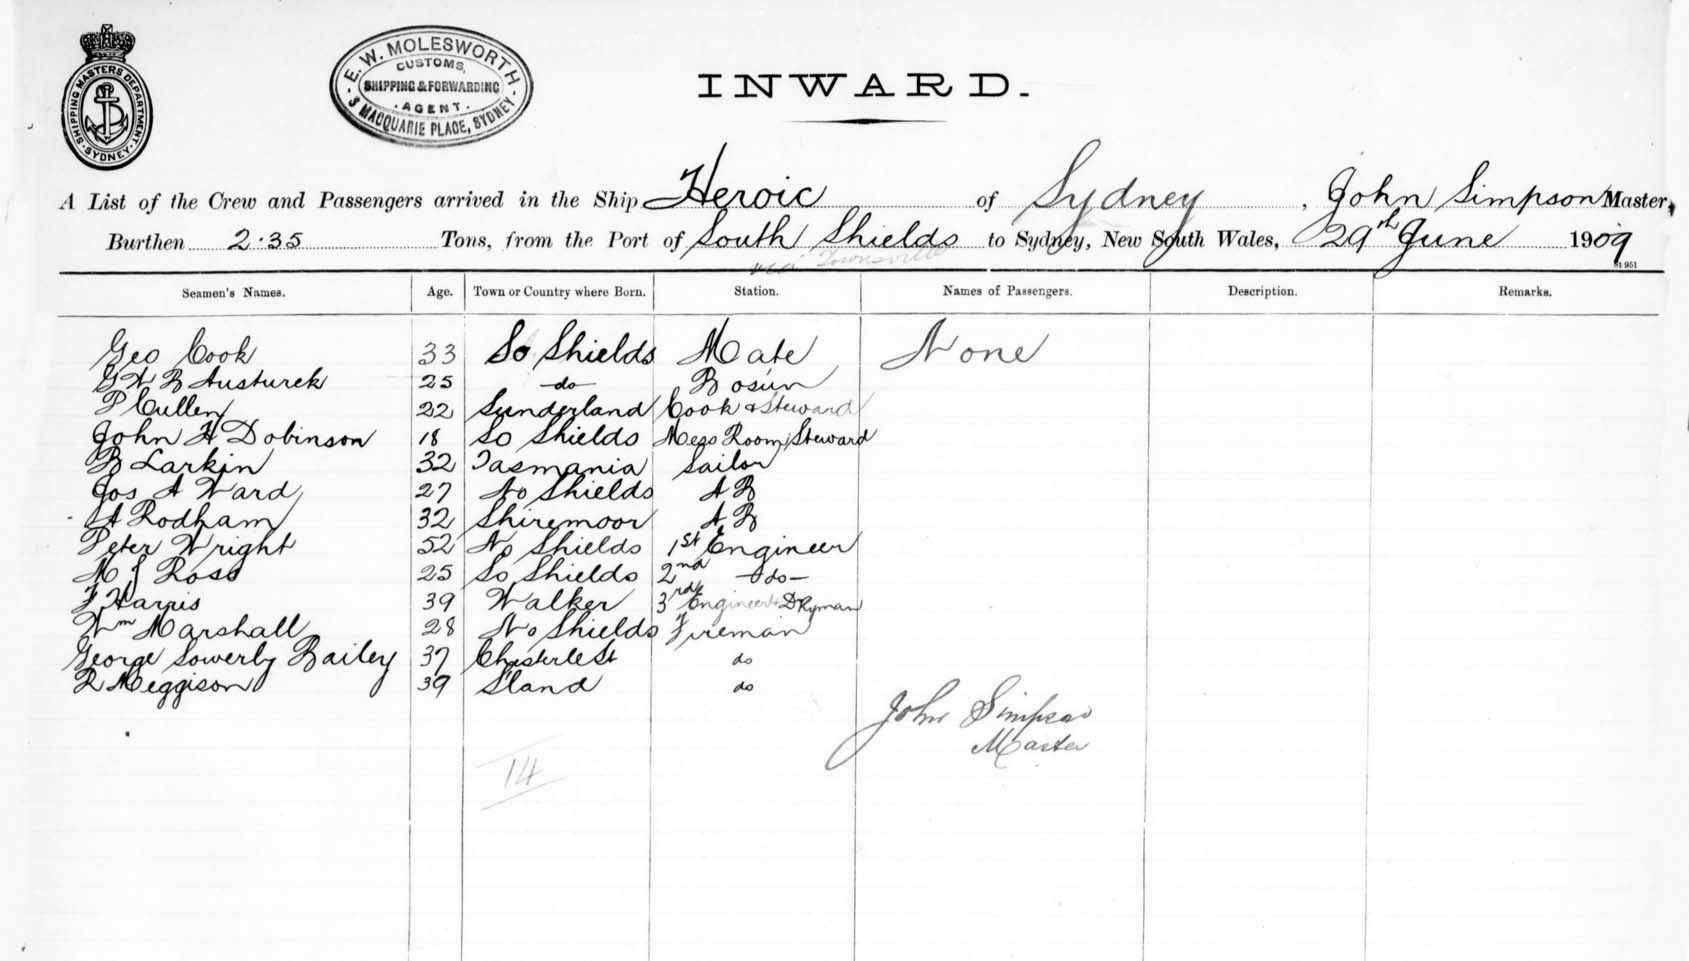 SHIPPING MASTERS DEPARTMENT. SYDNEY.
E. W. MOLESWORTH
CUSTOMS,
SHIPPING & FORWARDING
AGENT
3 MACQUARIE PLACE, SYDNEY
INWARD.
A List of the Crew and Passengers arrived in the Ship Heroic of Sydney, John Simpson Master,
Burthen 2.35 Tons, from the Port of South Shields to Sydney, New South Wales, 29th June 1909
via Townsville
St 951
Seamen's Names. Age. Town or Country where Born. Station. Names of Passengers. Description. Remarks.
Geo Cook 33 So Shields Mate None
G W B Austurek 25 do Bosun
P Cullen 22 Sunderland Cook & Steward
John H Dobinson 18 So Shields Mess Room Steward
B Larkin 32 Tasmania Sailor
Jos A Ward 27 No Shields A B
A Rodham 32 Shiremoor A B
Peter Wright 52 No Shields 1st Engineer
M J Ross 25 So Shields 2nd -do-
F Harris 39 Walker 3rd Engineer & Dkyman
Wm Marshall 28 No Shields Fireman
George Sowerby Bailey 37 Chesterle St do
R Meggison 39 S'land do
John Simpson
Master
14